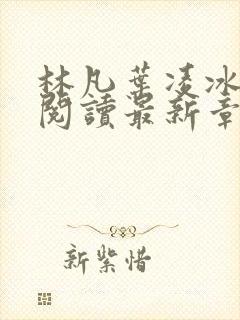 林凡葉凌冰
閱讀最新章
新紫惜